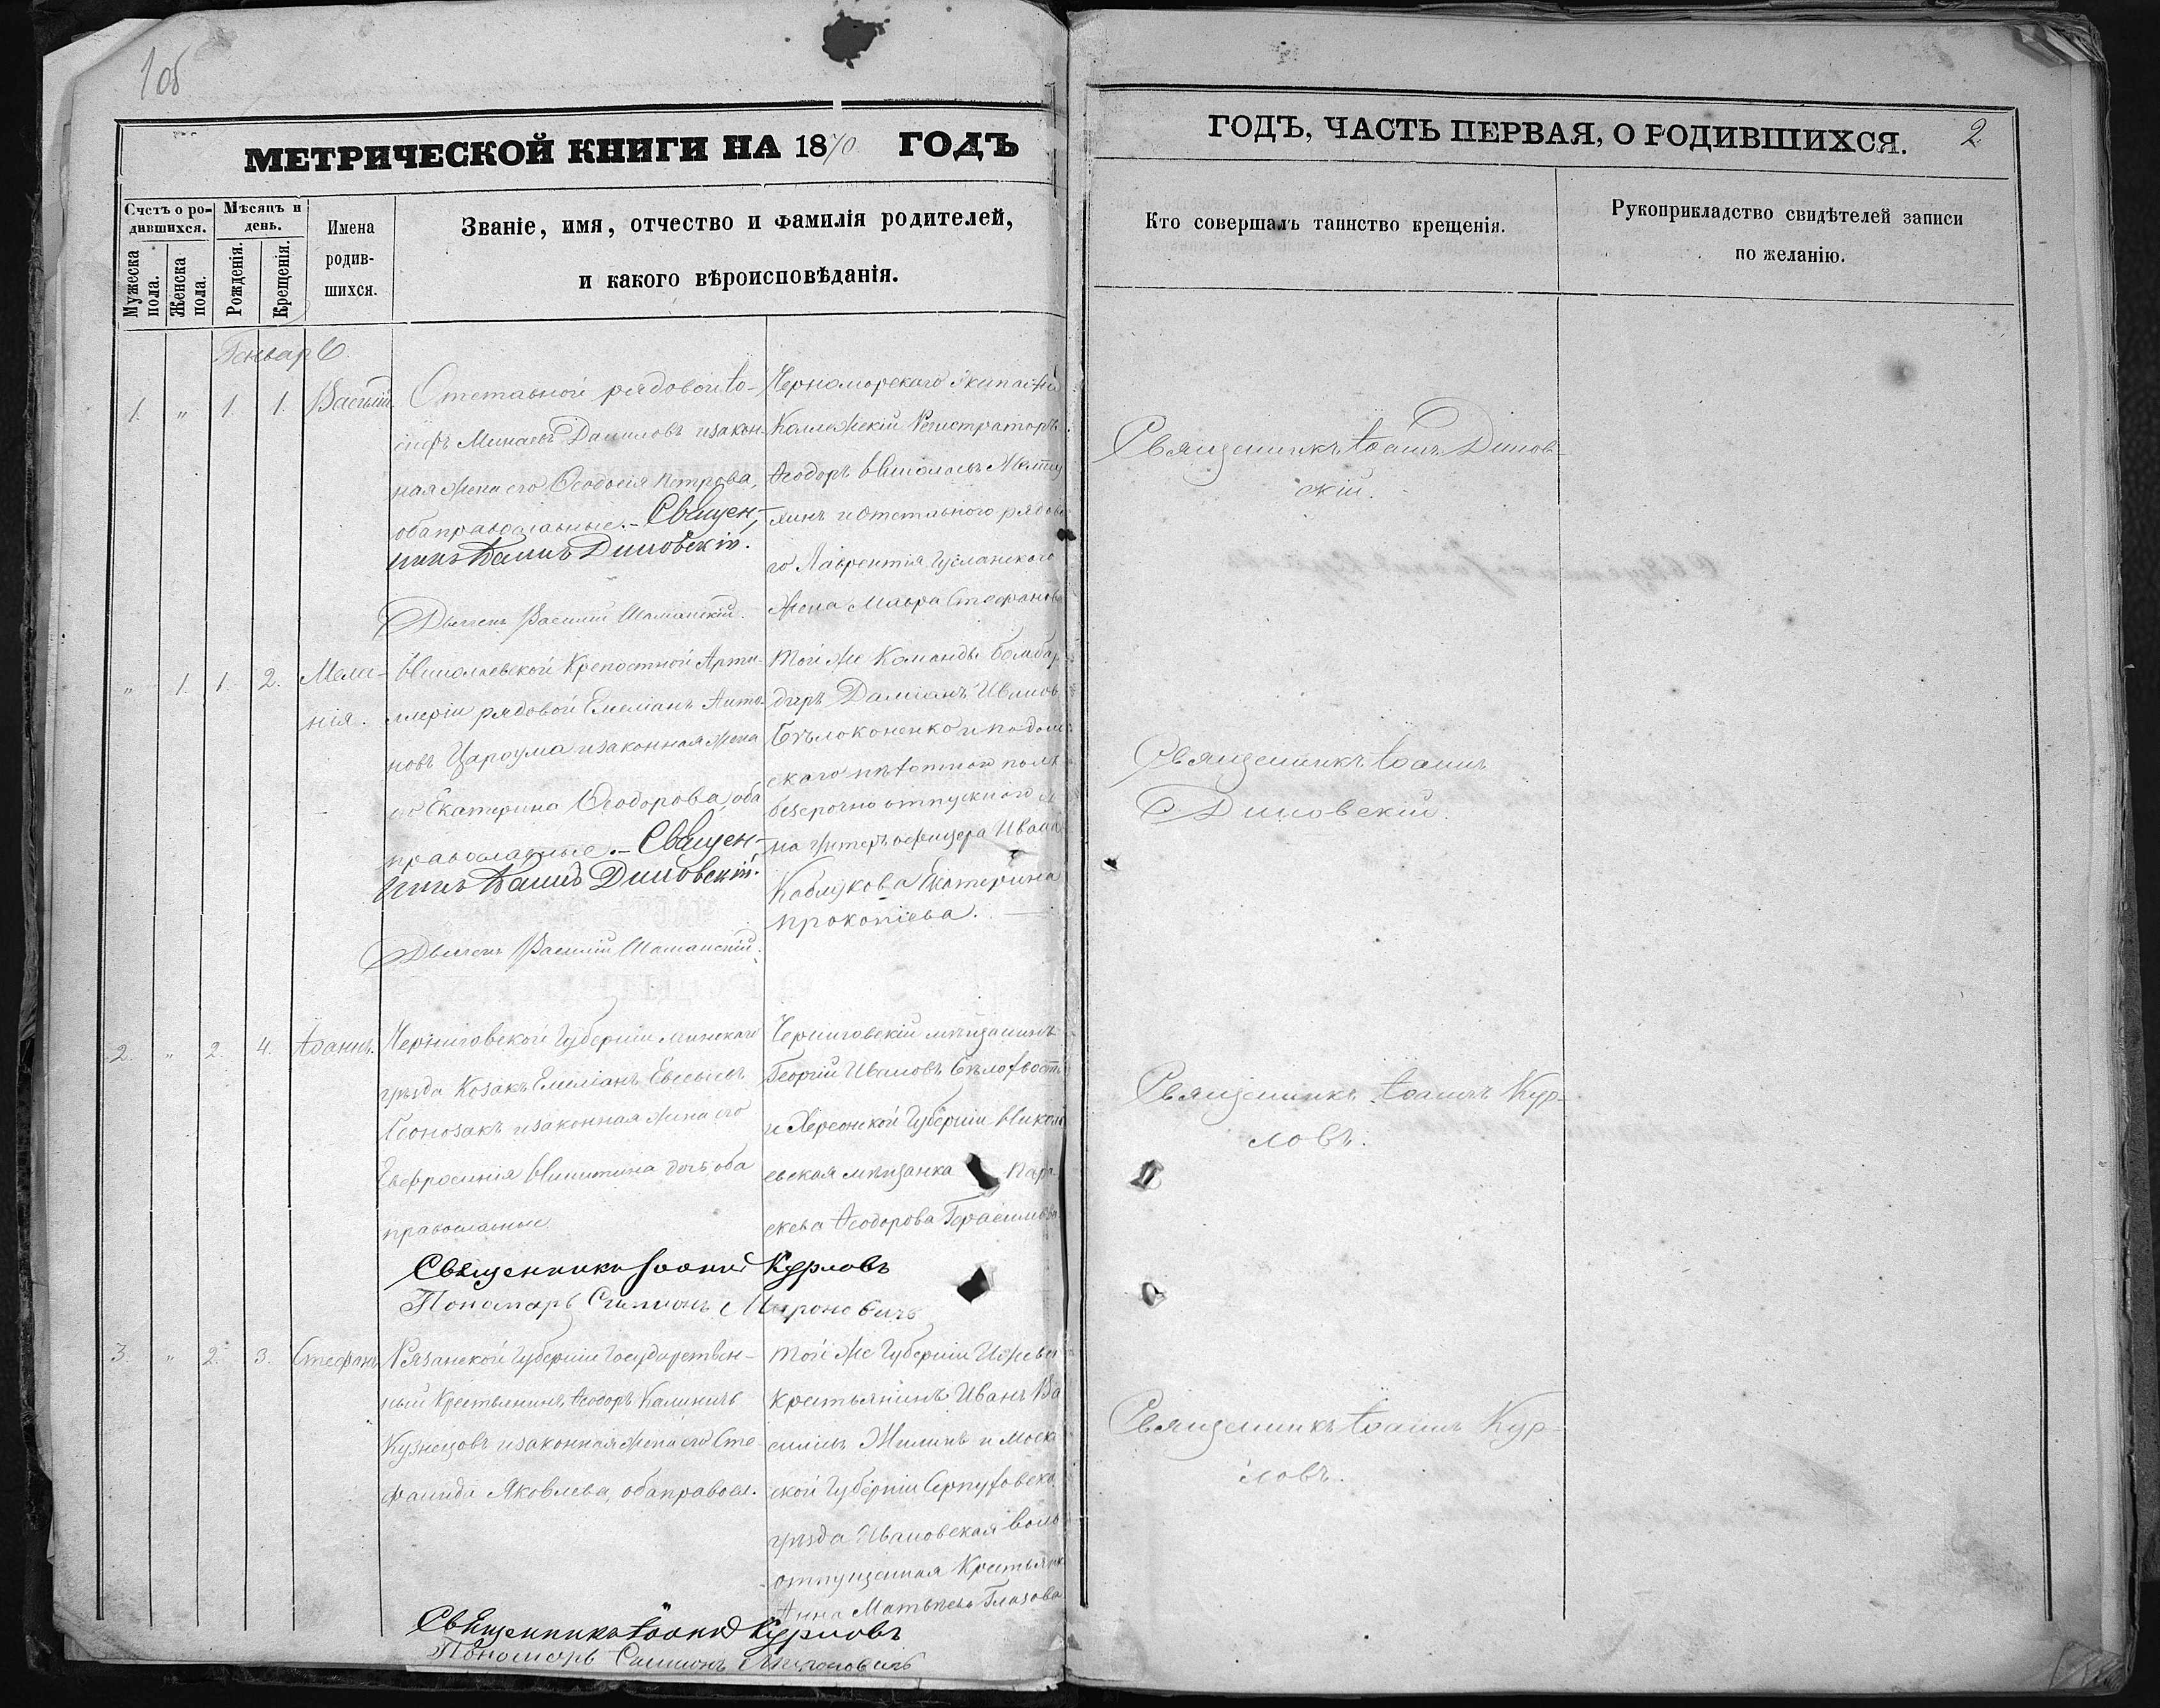 105
МЕТРИЧЕСКОЙ КНИГИ НА 1870 ГОДЪ
Счетъ о ро-
дившихся.
Мужеска пола.
Женска пола.
Мѣсяцъ и
день.
Рожденія.
Крещенія.
Имена
родив-
шихся.
Званіе, имя, отчество и фамилія родителей,
и какого вѣроисповѣданія.
Генварь
1. " 1. 1. Василій.
Отставной рядовой Іо-
сифъ Минаевъ Даниловъ и закон-
ная жена его Ѳеодосія Петрова,
оба православные. – Священ-
никъ Іоаннъ Диковскій.
Дьячекъ Василій Шаманскій.
Черноморскаго Экипажа
Коллежскій Регистраторъ
Ѳеодоръ Николаевъ
и отставного рядово
го Лаврентія
жена Мавра Стефанова
" 1. 1. 2. Мела-
нія.
Николаевской Крепостной Арти-
ллеріи рядовой Емеліанъ Анто-
новъ и законная жена
его Екатерина Ѳеодорова, оба
православные. – Священ-
никъ Іоаннъ Диковскій.
Дьячекъ Василій Шаманскій.
Той же Команды Бомбар
диръ Даміанъ Ивановъ
Бѣлоконенко и Подоль
скаго пѣхотнаго полка
безсрочно отпускного
унтеръ офицера Ивана
Каблукова Екатерина
Прокопіева.
2. " 2. 4. Іоаннъ.
Черниговской Губерніи
уѣзда Козакъ Емеліанъ Евсевіевъ
и законная жена его
Евфросинія Никитина дочь, оба
православные
Священникъ Іоаннъ Курловъ
Пономарь Симеонъ Мироновичъ
Черниговскій мѣщанинъ
Георгій Ивановъ Бѣлохвостъ
и Херсонской Губерніи Никола
евская мѣщанка Пара
скева Ѳеодорова Герасимова
3. " 2. 3. Стефанъ
Рязанской Губерніи Государствен-
ный Крестьянинъ Ѳеодоръ Калининъ
Кузнецовъ и законная жена его Сте-
фанида Яковлева, оба правосл.
Той же Губерніи
крестьянинъ Иванъ Ва
сильевъ Жилинъ и Моск
ской Губерніи Серпуховско
уѣзда Ивановская воль
отпущенная Крестьянк
Анна Матвѣева Глазова
Священникъ Іоаннъ Курловъ
Пономарь Симеонъ Мироновичъ
ГОДЪ, ЧАСТЬ ПЕРВАЯ, О РОДИВШИХСЯ.
2
Кто совершалъ таинство крещенія.
Рукоприкладство свидѣтелей записи
по желанію.
Священникъ Іоаннъ Диков-
скій.
Священникъ Іоаннъ
Диковскій.
Священникъ Іоаннъ Кур-
ловъ.
Священникъ Іоаннъ Кур-
ловъ.